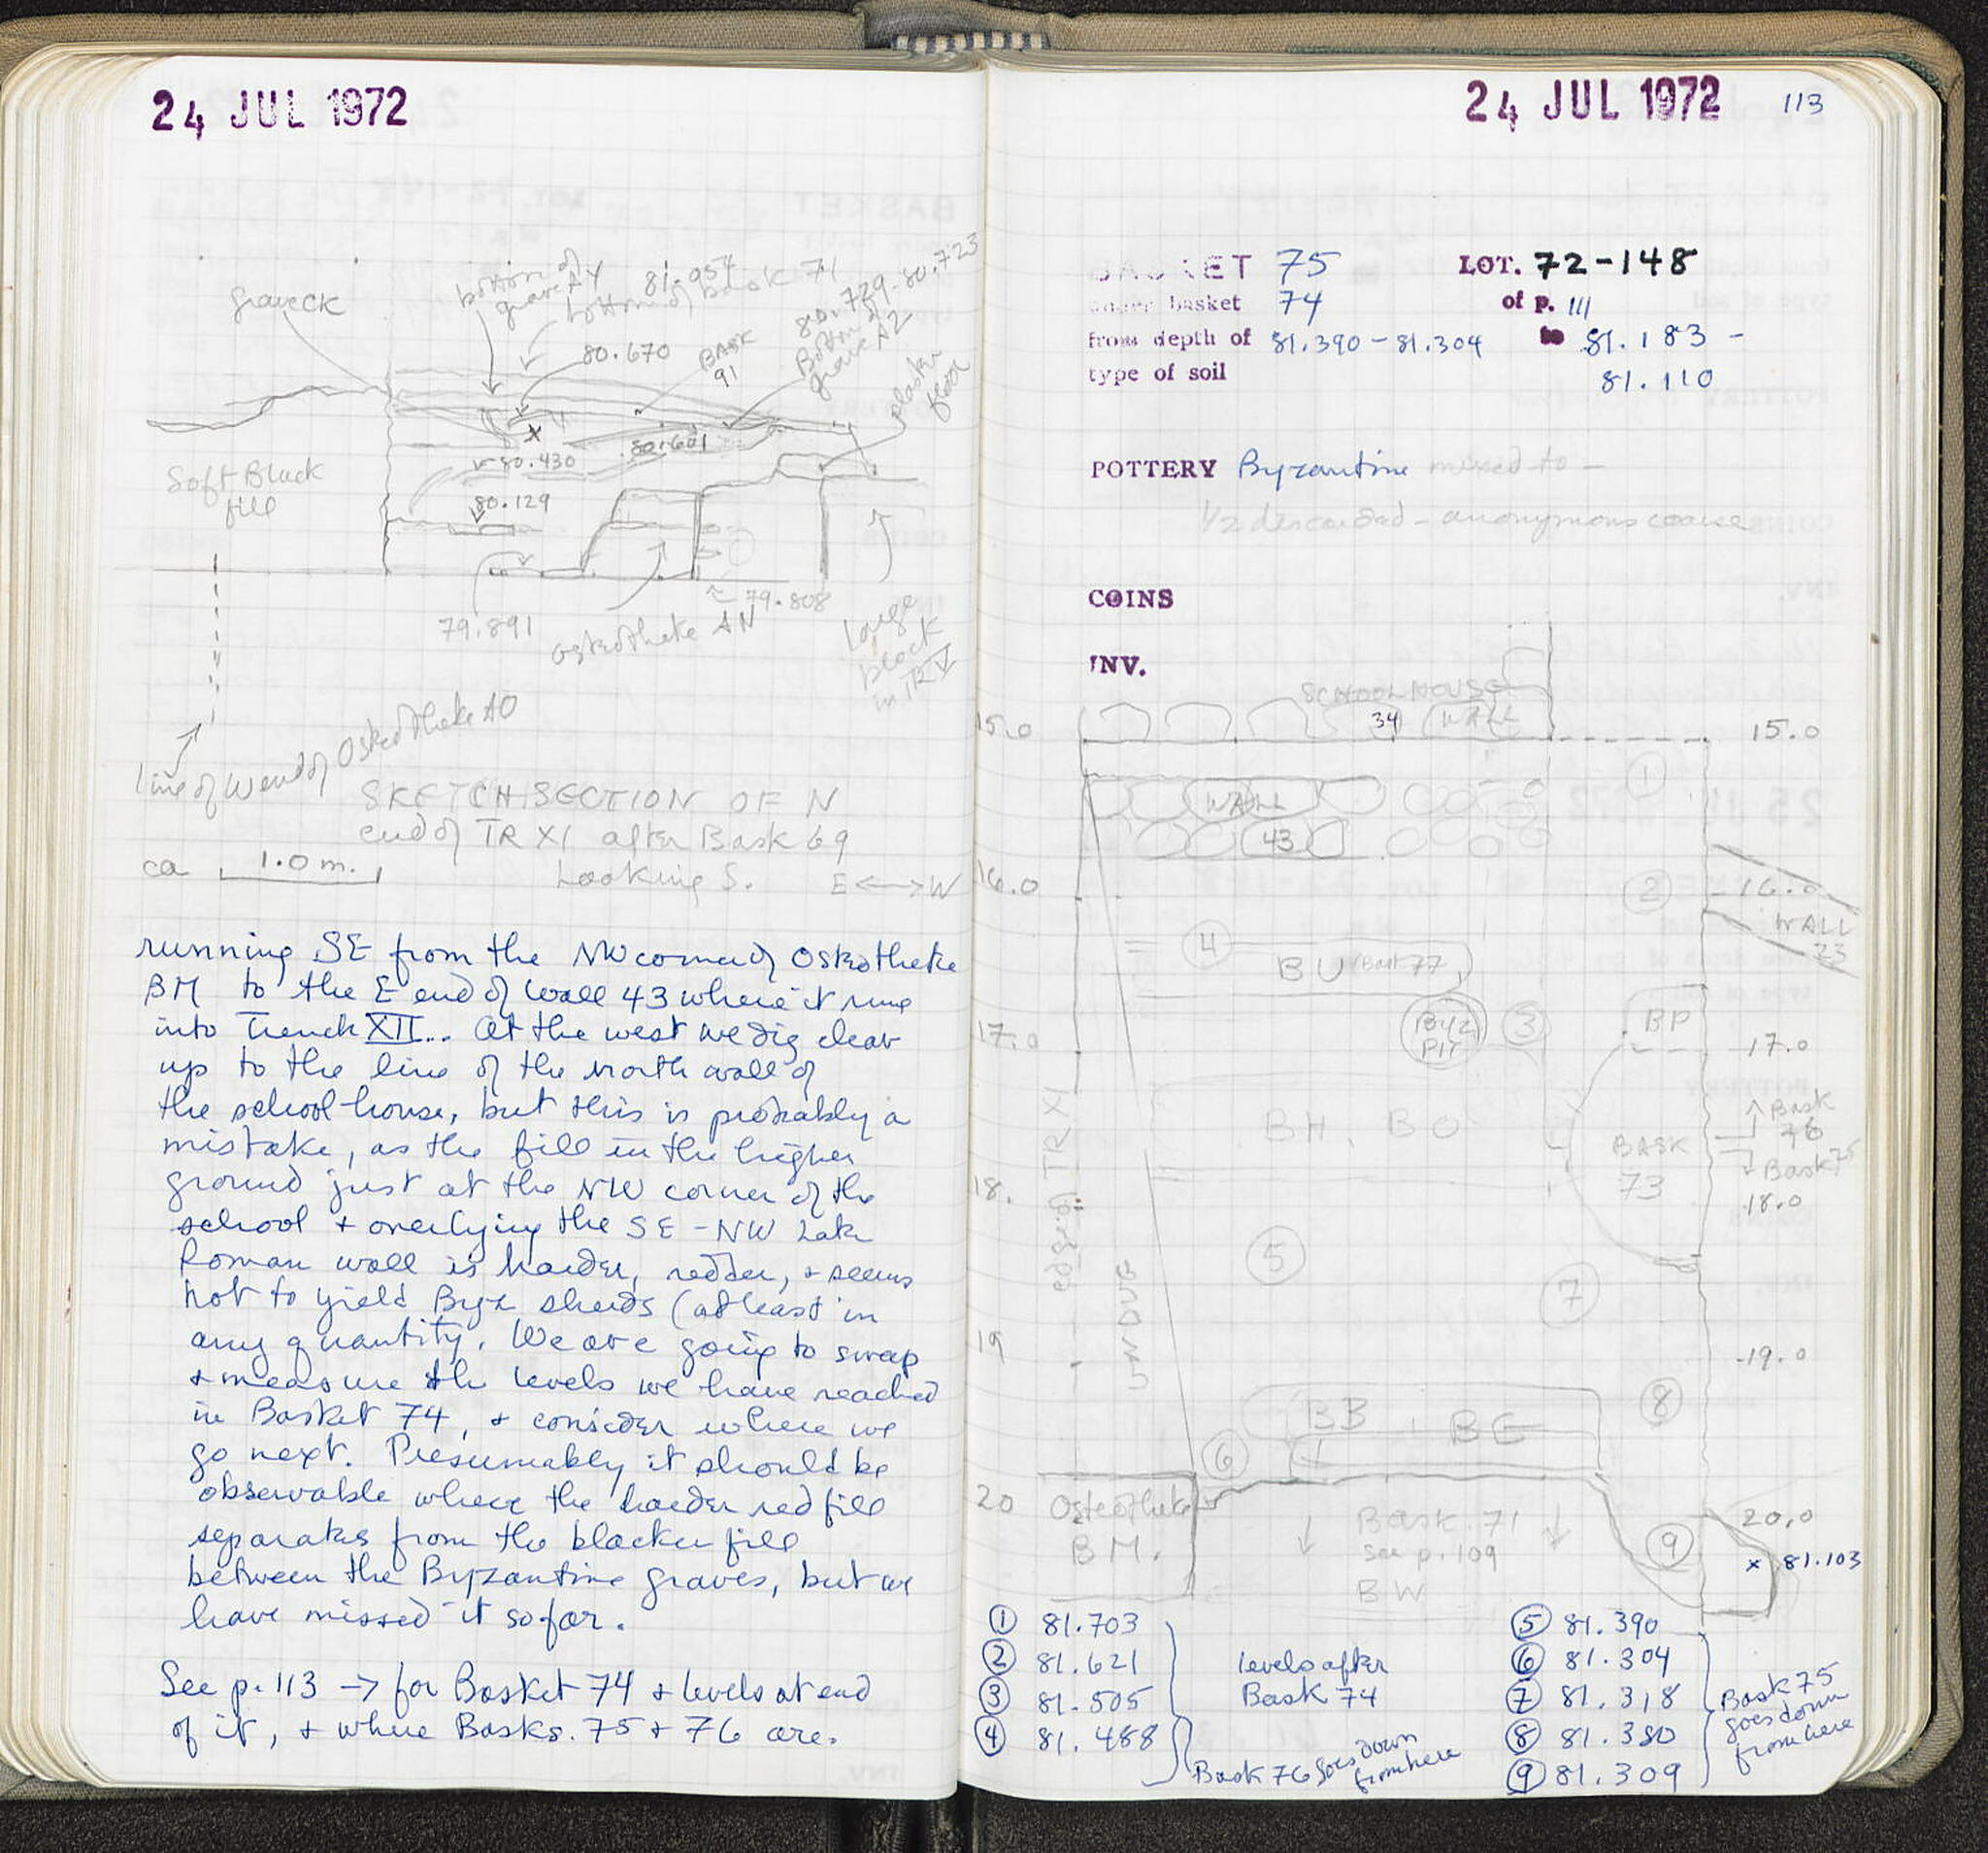 24 JUL 1972
grave CK
bottom of
grave AY
81.054
bottom of Bask 71
80.729-80.723
Bottom of
grave AZ
80.670
BASK
91
plaster
floor
X
80.601
80.430
Soft Black
fill
80.129
79.808
79.891
Osteotheke AN
Large
block
in TR V
line of W end of Osteotheke AO
SKETCH SECTION OF N
end of TR XI after Bask 69
ca 1.0 m.
Looking S. E ↔ W
running SE from the NW corner of Osteotheke
BM to the E end of Wall 43 where it runs
into Trench XII... At the west we dig clear
up to the line of the north wall of
the school-house, but this is probably a
mistake, as the fill in the higher
ground just at the NW corner of the
school + overlying the SE-NW Late
Roman wall is harder, redder, + seems
not to yield Byz sherds (at least in
any quantity. We are going to sweep
+ measure the levels we have reached
in Basket 74, + consider where we
go next. Presumably it should be
observable where the harder red fill
separates from the blacker fill
between the Byzantine graves, but we
have missed it so far.
See p. 113 → for Basket 74 + levels at end
of it, + where Basks. 75 + 76 are.
24 JUL 1972 113
BASKET 75 LOT. 72-148
under basket 74 of p. 111
from depth of 81.390-81.304 to 81.183-
type of soil 81.110
POTTERY Byzantine mixed to -
1/2 discarded - anonymous coarse
COINS
INV.
SCHOOLHOUSE
34 WALL
15.0 15.0
1
WALL
43
16.0 2 16.0
WALL
23
4
BU (Bask 77)
Byz
Pit
3
BP
17.0 17.0
Bask
76
BH. BO
BASK
73
Bask 75
18. 18.0
edge of TR XI
UNDUG
5
7
19 19.0
8
BB BE
6
20 20.0
Osteotheke
BM.
Bask. 71
see p. 109
BW
9
x 81.103
① 81.703
② 81.621
③ 81.505
④ 81.488
levels after
Bask 74
Bask 76 goes down
from here
⑤ 81.390
⑥ 81.304
⑦ 81.318
⑧ 81.380
⑨ 81.309
Bask 75
goes down
from here